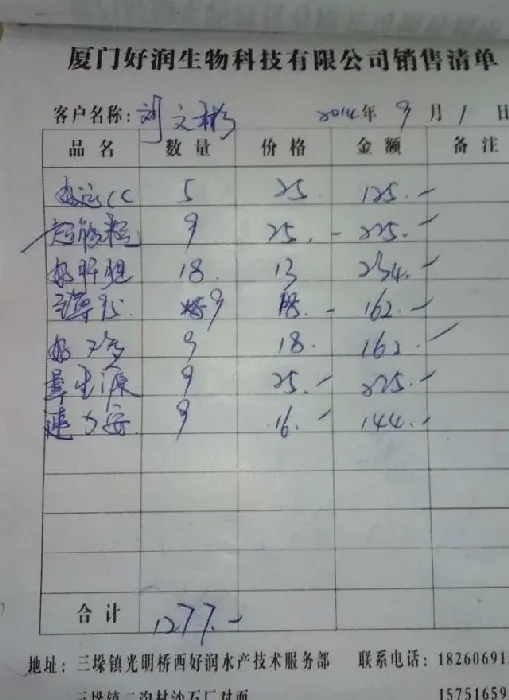 厦门好润生物科技有限公司销售清单
客户名称: 刘文彬 2014年 9月 1日
品名 数量 价格 金额 备注
CC 5 25 125.-
超能粒 9 25.- 225.-
好肝胆 18. 13 234.-
9 18.- 162.-
好 9 18. 162.-
生源 9 25.- 225.-
速力安 9 16.- 144.-
合计 1277.-
地址: 三垛镇光明桥西好润水产技术服务部 联系电话: 18260691
三垛镇二沟村沙石厂对面 15751659